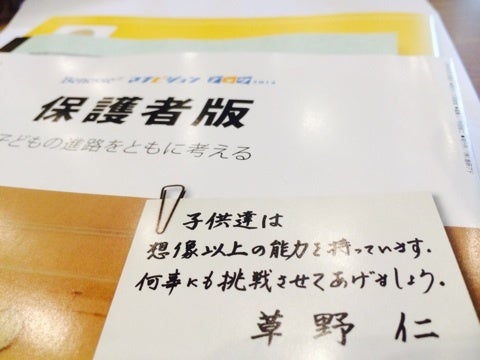 Benesse
保護者版
子どもの進路をともに考える
子供達は
想像以上の能力を持っています.
何事にも挑戦させてあげましょう.
草野 仁